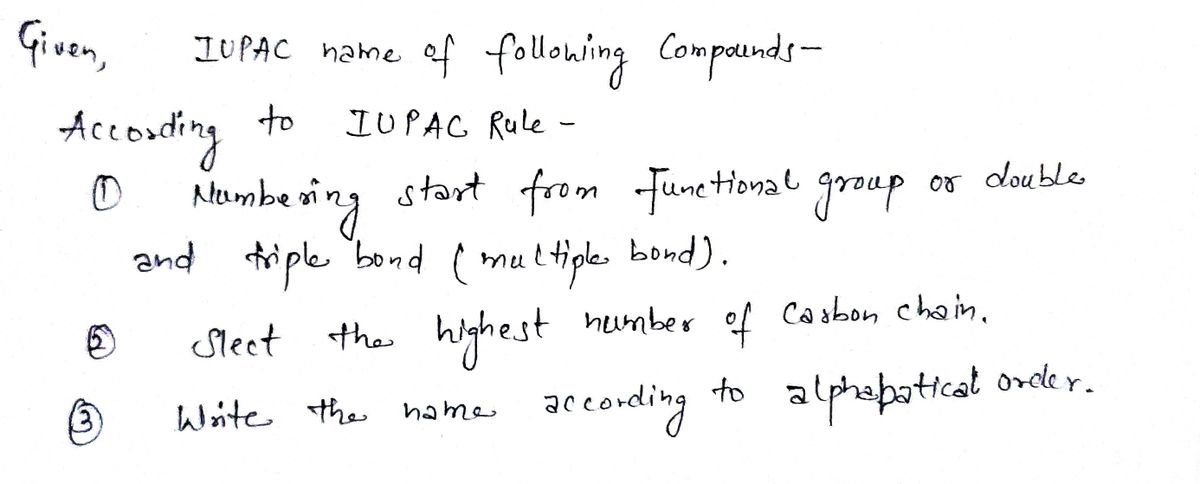 Given, IUPAC name of following Compounds-
According to IUPAC Rule -
① Numbering start from functional group or double
and triple bond ( multiple bond).
② Slect the highest number of Carbon chain.
③ Write the name according to alphapatical order.